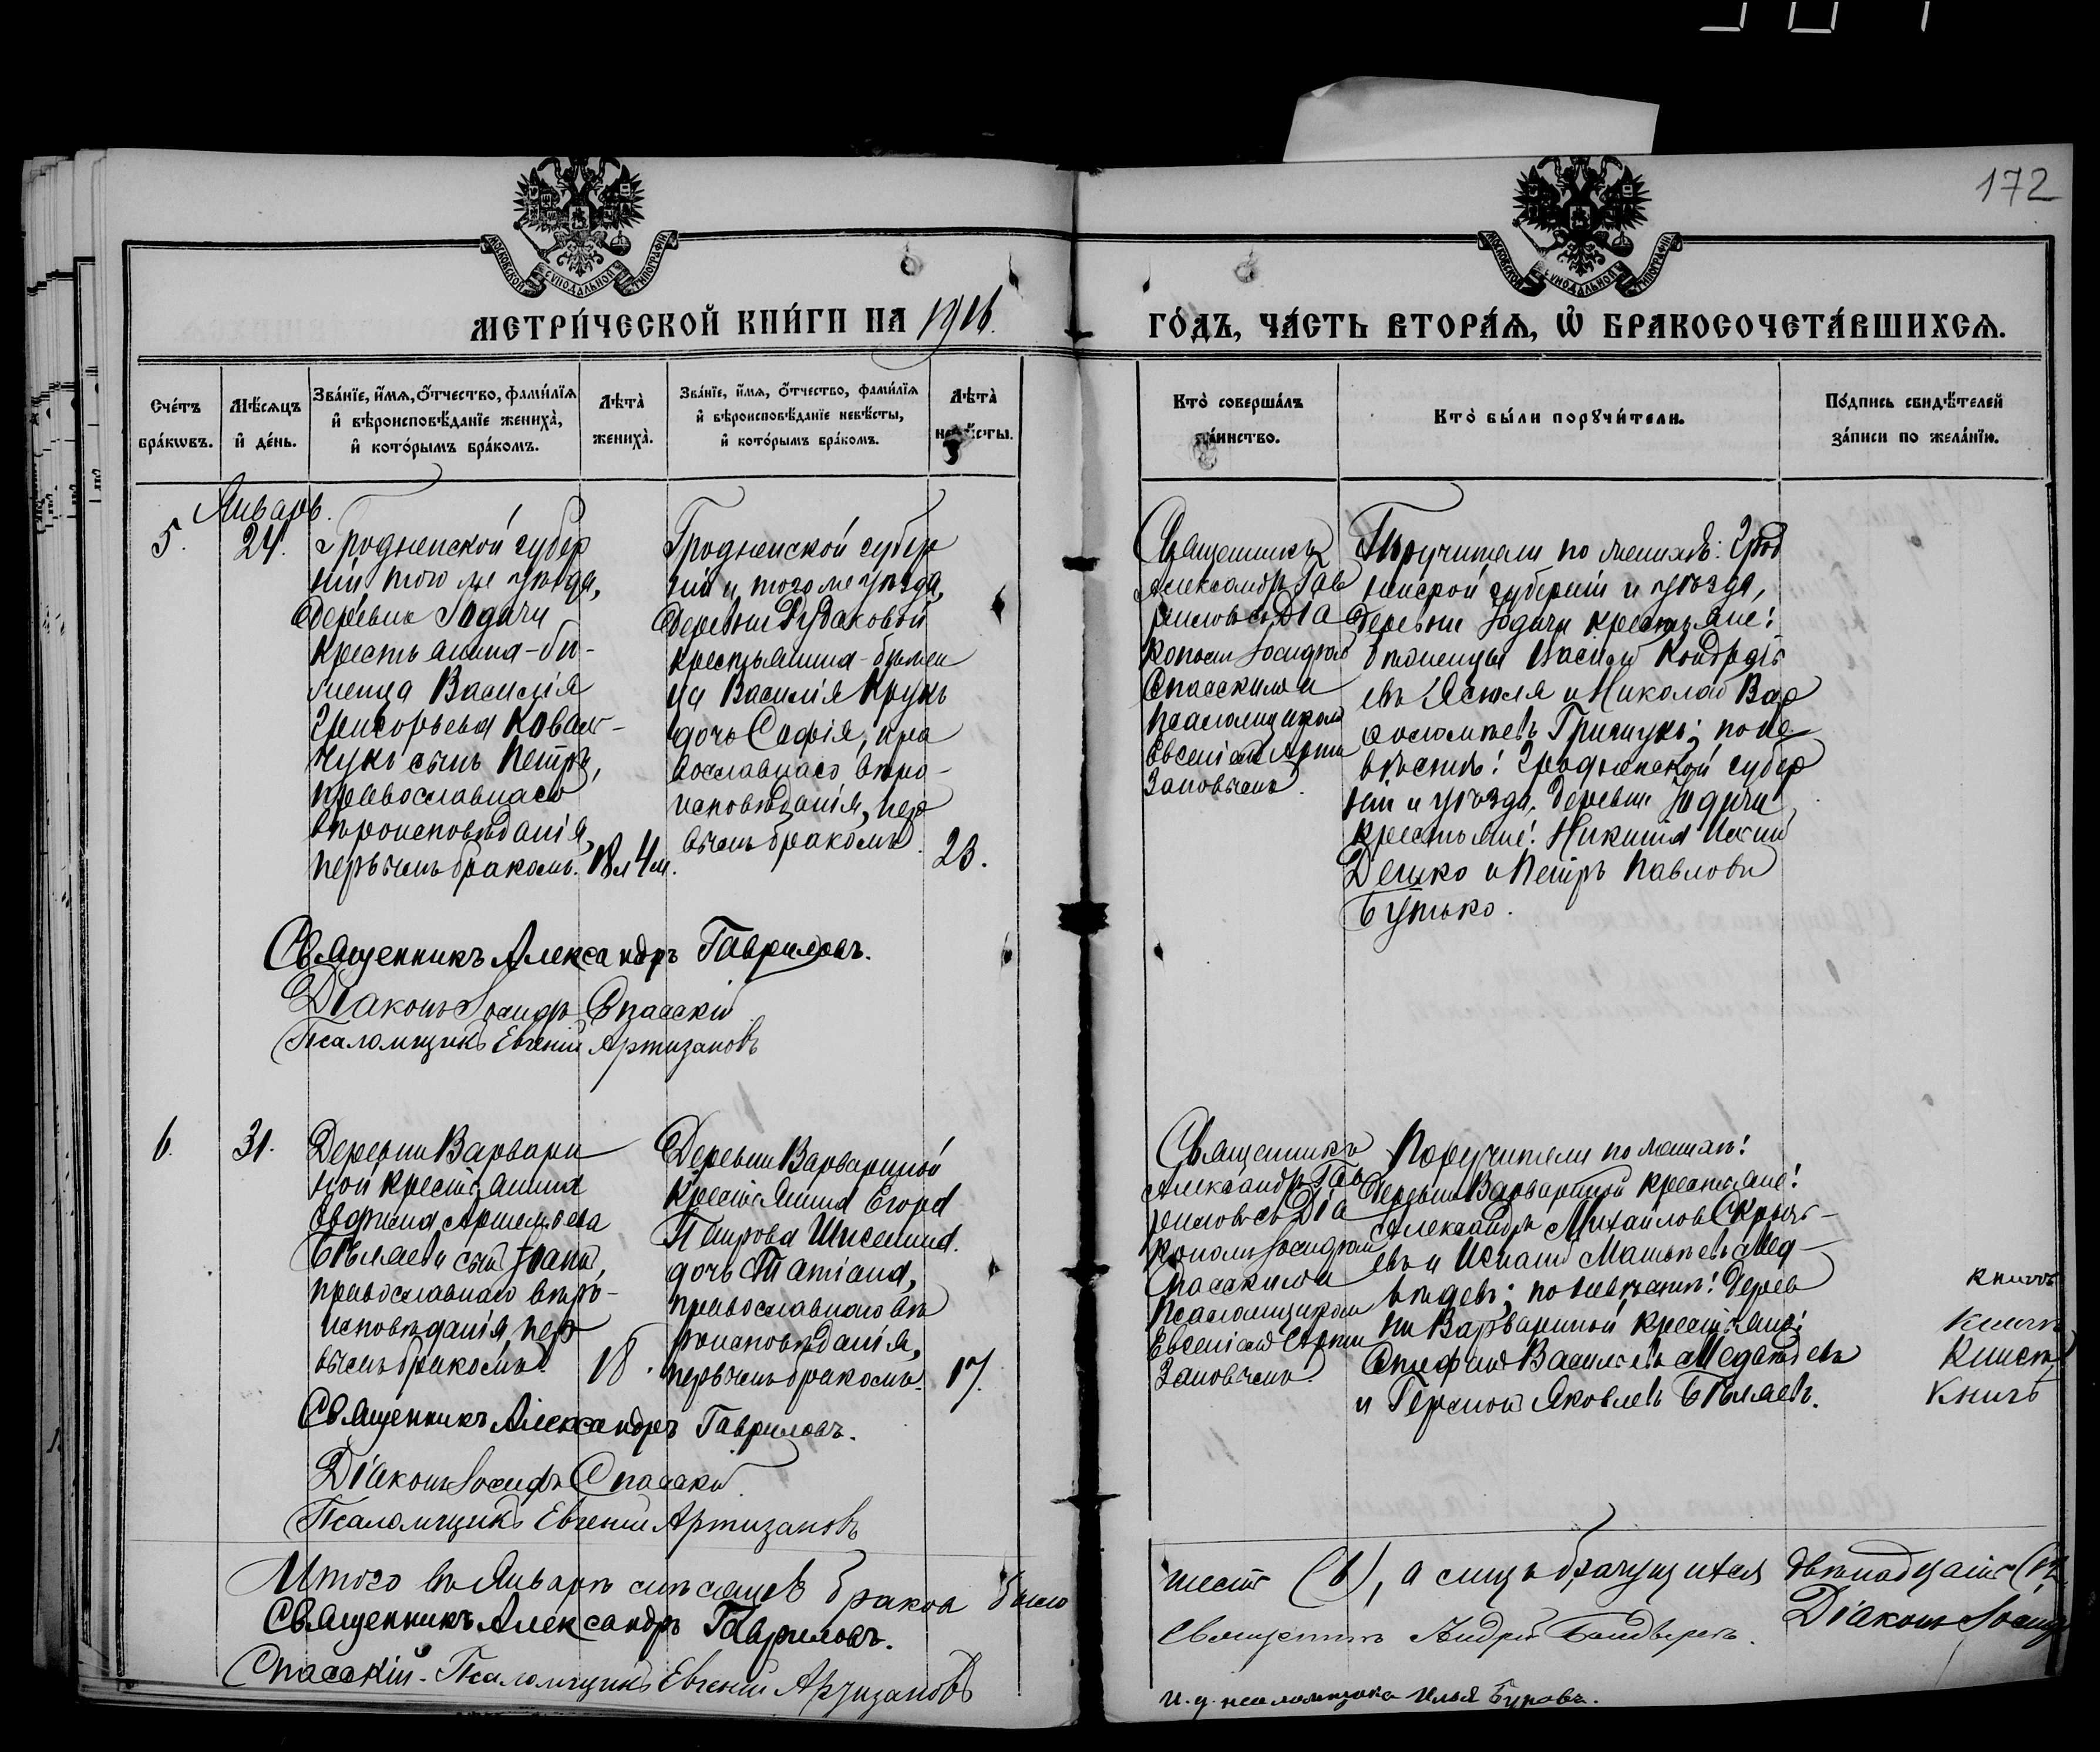 172
МЕТРИ́ЧЕСКОЙ КНИ́ГИ НА 1916.
ГО́ДЪ, ЧА́СТЬ ВТОРА́Ѧ, Ѽ БРАКОСОЧЕТА́ВШИХСѦ.
Сче́тъ бра́кѡвъ.
Мѣ́сѧцъ и҆ де́нь.
Зва́нїе, и҆́мѧ, ѻ҆́тчество, фами́лїѧ
и҆ вѣроисповѣ́данїе жениха̀,
и҆ кото́рымъ бра́комъ.
Лѣта̀ жениха̀.
Зва́нїе, и҆́мѧ, ѻ҆́тчество, фами́лїѧ
и҆ вѣроисповѣ́данїе невѣ́сты,
и҆ кото́рымъ бра́комъ.
Лѣта̀ невѣ́сты.
Кто̀ соверша́лъ та́инство.
Кто̀ бы́ли порꙋчи́тели.
По́дпись свидѣ́телей
за́писи по жела́нїю.
Январь.
5.
24.
Гродненской губер
ніи того же уѣзда,
деревни Юдичи
крестьянина-бѣ-
женца Василія
Григорьева Коваль-
чукъ сынъ Петръ,
православнаго
вѣроисповѣданія,
первымъ бракомъ.
18 л 4 м.
Гродненской губер
ніи и того же уѣзда,
деревни Рудаковой
крестьянина-бѣжен
ца Василія Крукъ
дочь Софія, пра
вославнаго вѣро-
исповѣданія, пер
вымъ бракомъ.
23.
Священникъ
Александръ Гав
риловъ съ Діа
кономъ Іосифомъ
Спасскимъ и
псаломщикомъ
Евгеніемъ Арти
зановымъ.
Поручители по женихѣ: Грод
ненской губерніи и уѣзда,
деревни Юдичи крестьяне:
бѣженцы Василій Кондрать
евъ и Николай Вар
ѳоломеевъ Грищукъ; по не
вѣстѣ: Гродненской губер
ніи и уѣзда, деревни Юдичи
крестьяне: Никита
Дешко и Петръ Павловъ
Бутько.
Священникъ Александръ Гавриловъ.
Діаконъ Іосифъ Спасскій
Псаломщикъ Евгеній Артизановъ
6.
31.
Деревни Варвари
ной крестьянина
Евфима Артемьева
Бѣляева сынъ Іоаннъ,
православнаго вѣро-
исповѣданія, пер
вымъ бракомъ.
18.
Деревни Варвариной
крестьянина Егора
Петрова Шишкина.
дочь Татіана,
православнаго вѣ
роисповѣданія,
первымъ бракомъ.
17.
Священникъ
Александръ Гав
риловъ съ Діа
кономъ Іосифомъ
Спасскимъ и
Псаломщикомъ
Евгеніемъ Арти
зановымъ.
Поручители по женихѣ:
деревни Варвариной крестьяне:
Александръ Михайловъ
евъ и Матвѣевъ Мед-
вѣдевъ; по невѣстѣ: дерев
ни Варвариной крестьяне:
Стефанъ Васильевъ Медвѣдевъ
и Герасимъ Яковлевъ Бѣляевъ.
Священникъ Александръ Гавриловъ.
Діаконъ Іосифъ Спасскій.
Псаломщикъ Евгеній Артизановъ
Итого въ Январѣ мѣсяцѣ брака было
шесть (6), а лицъ брачущихся двѣнадцать (12
Священникъ Александръ Гавриловъ.
Діаконъ Іосиф
Спасскій. Псаломщикъ Евгеній Артизановъ
Священникъ Андрей
и. д. псаломщика Илья Буровъ.